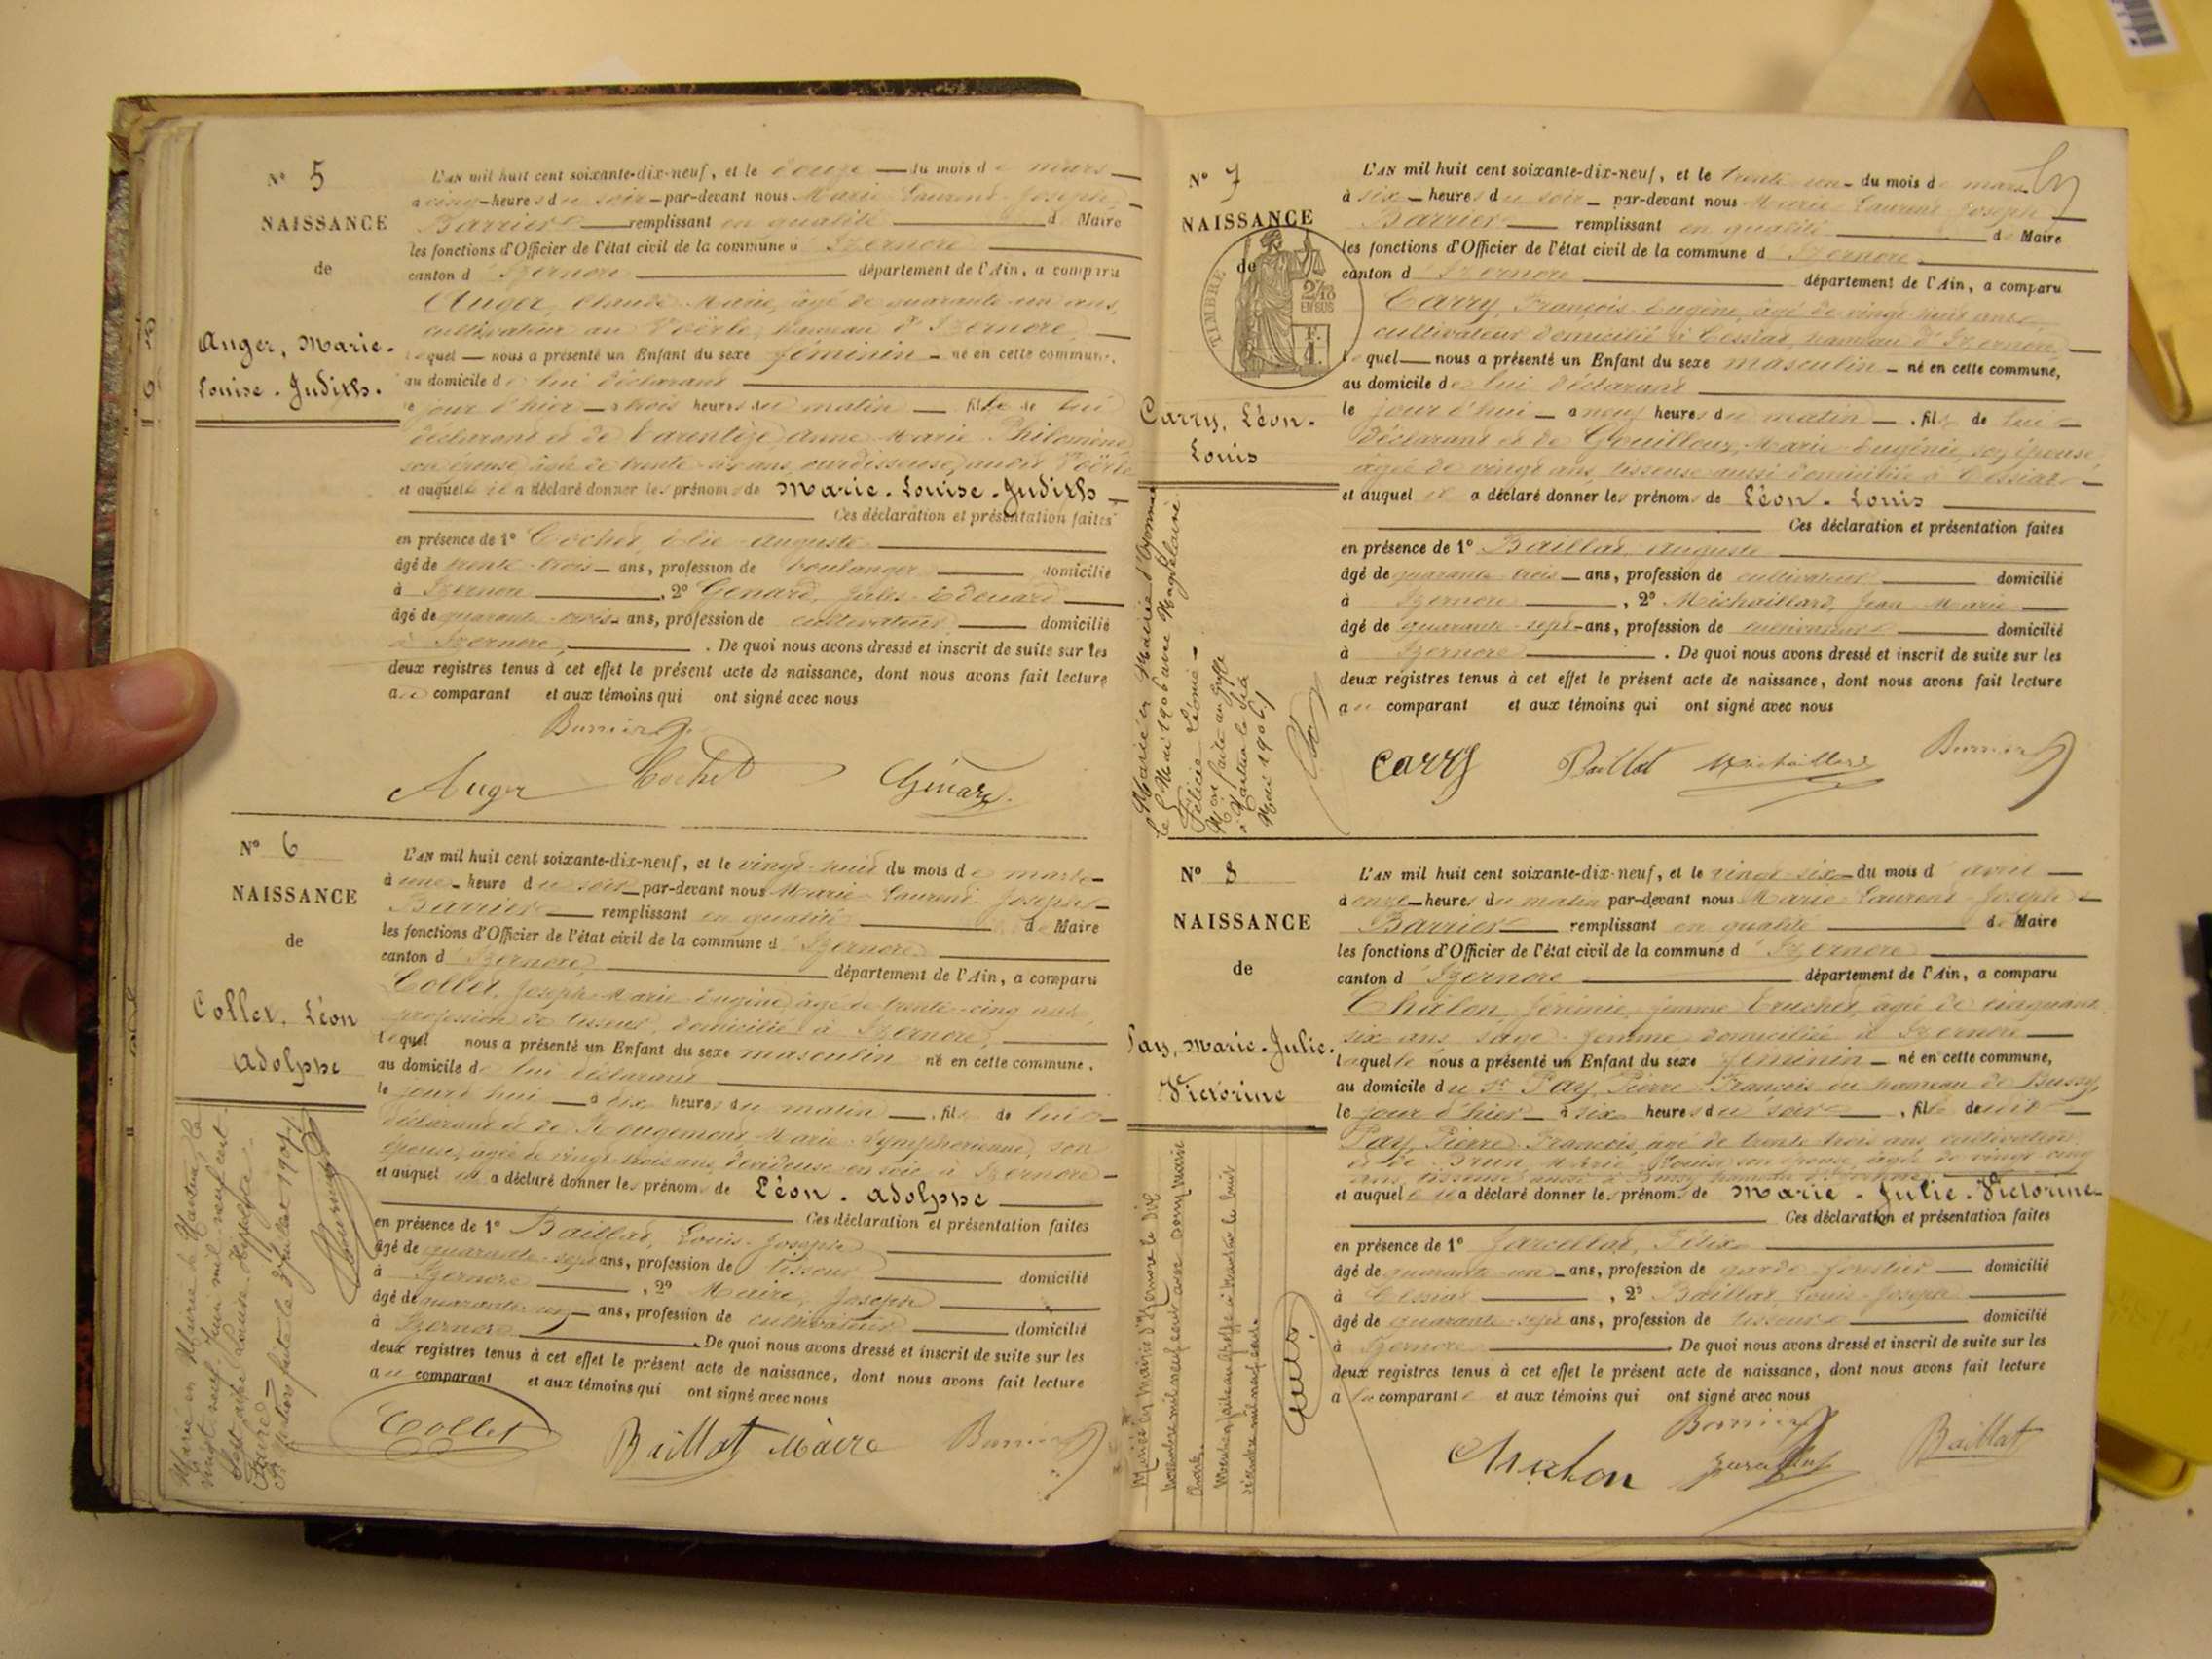 N° 5
NAISSANCE
de
Auger, Marie-
Louise-Judith.
L'AN mil huit cent soixante-dix-neuf, et le douze du mois de mars
à cinq heures du soir par-devant nous Marie Laurent Joseph
Barrier remplissant en qualité de Maire
les fonctions d'Officier de l'état civil de la commune d'Izernore
canton d'Izernore département de l'Ain, a comparu
Auger, Claude Marie, âgé de quarante-un ans,
cultivateur au Voërle, hameau d'Izernore,
lequel nous a présenté un Enfant du sexe féminin né en cette commune,
au domicile de lui déclarant
le jour d'hier à trois heures du matin fille de lui
déclarant et de Varentège Anne Marie Philomène
son épouse âgée de trente-six ans, ourdisseuse, audit Voërle
et auquel il a déclaré donner les prénoms de Marie-Louise-Judith
Ces déclaration et présentation faites
en présence de 1° Cochet, Élie Auguste
âgé de trente-trois ans, profession de boulanger domicilié
à Izernore, 2° Genard, Jules Édouard
âgé de quarante-trois ans, profession de cultivateur domicilié
à Izernore. De quoi nous avons dressé et inscrit de suite sur les
deux registres tenus à cet effet le présent acte de naissance, dont nous avons fait lecture
au comparant et aux témoins qui ont signé avec nous
Auger Cochet Génard
N° 6
NAISSANCE
de
Collet, Léon
Adolphe
L'AN mil huit cent soixante-dix-neuf, et le vingt-huit du mois de mars
à une heure du soir par-devant nous Marie Laurent Joseph
Barrier remplissant en qualité de Maire
les fonctions d'Officier de l'état civil de la commune d'Izernore
canton d'Izernore département de l'Ain, a comparu
Collet, Joseph Marie Eugène, âgé de trente-cinq ans,
profession de tisseur, domicilié à Izernore,
lequel nous a présenté un Enfant du sexe masculin né en cette commune,
au domicile de lui déclarant
le jourd'hui à dix heures du matin, fils de lui
déclarant et de Rougemont Marie Symphorienne, son
épouse, âgée de vingt-trois ans, dévideuse en soie à Izernore
et auquel il a déclaré donner les prénoms de Léon-Adolphe
Ces déclaration et présentation faites
en présence de 1° Baillat, Louis-Joseph
âgé de quarante-sept ans, profession de tisseur domicilié
à Izernore, 2° Maire, Joseph
âgé de quarante-un ans, profession de cultivateur domicilié
à Izernore. De quoi nous avons dressé et inscrit de suite sur les
deux registres tenus à cet effet le présent acte de naissance, dont nous avons fait lecture
au comparant et aux témoins qui ont signé avec nous
Collet Baillat Maire
N° 7
NAISSANCE
de
TIMBRE
2/10
EN SUS
Carry, Léon-
Louis
Marié en Mairie d'Oyonnax
le 5 Mai 1906 avec Magdelaine
Félicie Léonie
L'AN mil huit cent soixante-dix-neuf, et le trente-un du mois de mars
à six heures du soir par-devant nous Marie Laurent Joseph
Barrier remplissant en qualité de Maire
les fonctions d'Officier de l'état civil de la commune d'Izernore
canton d'Izernore département de l'Ain, a comparu
Carry, François Eugène, âgé de vingt-huit ans,
cultivateur domicilié à Cessiat, hameau d'Izernore,
lequel nous a présenté un Enfant du sexe masculin né en cette commune,
au domicile de lui déclarant
le jour d'hui à neuf heures du matin, fils de lui
déclarant et de Gouilloux Marie Eugénie, son épouse,
âgée de vingt ans, tisseuse aussi domiciliée à Cessiat
et auquel il a déclaré donner les prénoms de Léon-Louis
Ces déclaration et présentation faites
en présence de 1° Baillat, Auguste
âgé de quarante-trois ans, profession de cultivateur domicilié
à Izernore, 2° Michaillard, Jean Marie
âgé de quarante-sept ans, profession de domicilié
à Izernore. De quoi nous avons dressé et inscrit de suite sur les
deux registres tenus à cet effet le présent acte de naissance, dont nous avons fait lecture
au comparant et aux témoins qui ont signé avec nous
Carry Baillat Michaillard
N° 8
NAISSANCE
de
Pay, Marie-Julie-
Victorine
L'AN mil huit cent soixante-dix-neuf, et le vingt-six du mois d'avril
à onze heures du matin par-devant nous Marie Laurent Joseph
Barrier remplissant en qualité de Maire
les fonctions d'Officier de l'état civil de la commune d'Izernore
canton d'Izernore département de l'Ain, a comparu
Châlon, Jérémie, femme Truchet, âgée de cinquante
six ans, sage-femme domiciliée à Izernore
laquelle nous a présenté un Enfant du sexe féminin né en cette commune,
au domicile du Sr Pay, Pierre François au hameau de Bussy,
le jour d'hier à six heures du soir, fille dudit
Pay, Pierre François, âgé de trente-trois ans, cultivateur
et de Brun, Marie Louise son épouse, âgée de vingt-cinq
et auquel elle a déclaré donner les prénoms de Marie-Julie-Victorine
Ces déclaration et présentation faites
en présence de 1° Jarcellat, Félix
âgé de quarante-un ans, profession de garde-forestier domicilié
à Cessiat, 2° Baillat, Louis-Joseph
âgé de quarante-sept ans, profession de tisseur domicilié
à Izernore. De quoi nous avons dressé et inscrit de suite sur les
deux registres tenus à cet effet le présent acte de naissance, dont nous avons fait lecture
à la comparante et aux témoins qui ont signé avec nous
Chalon Baillat